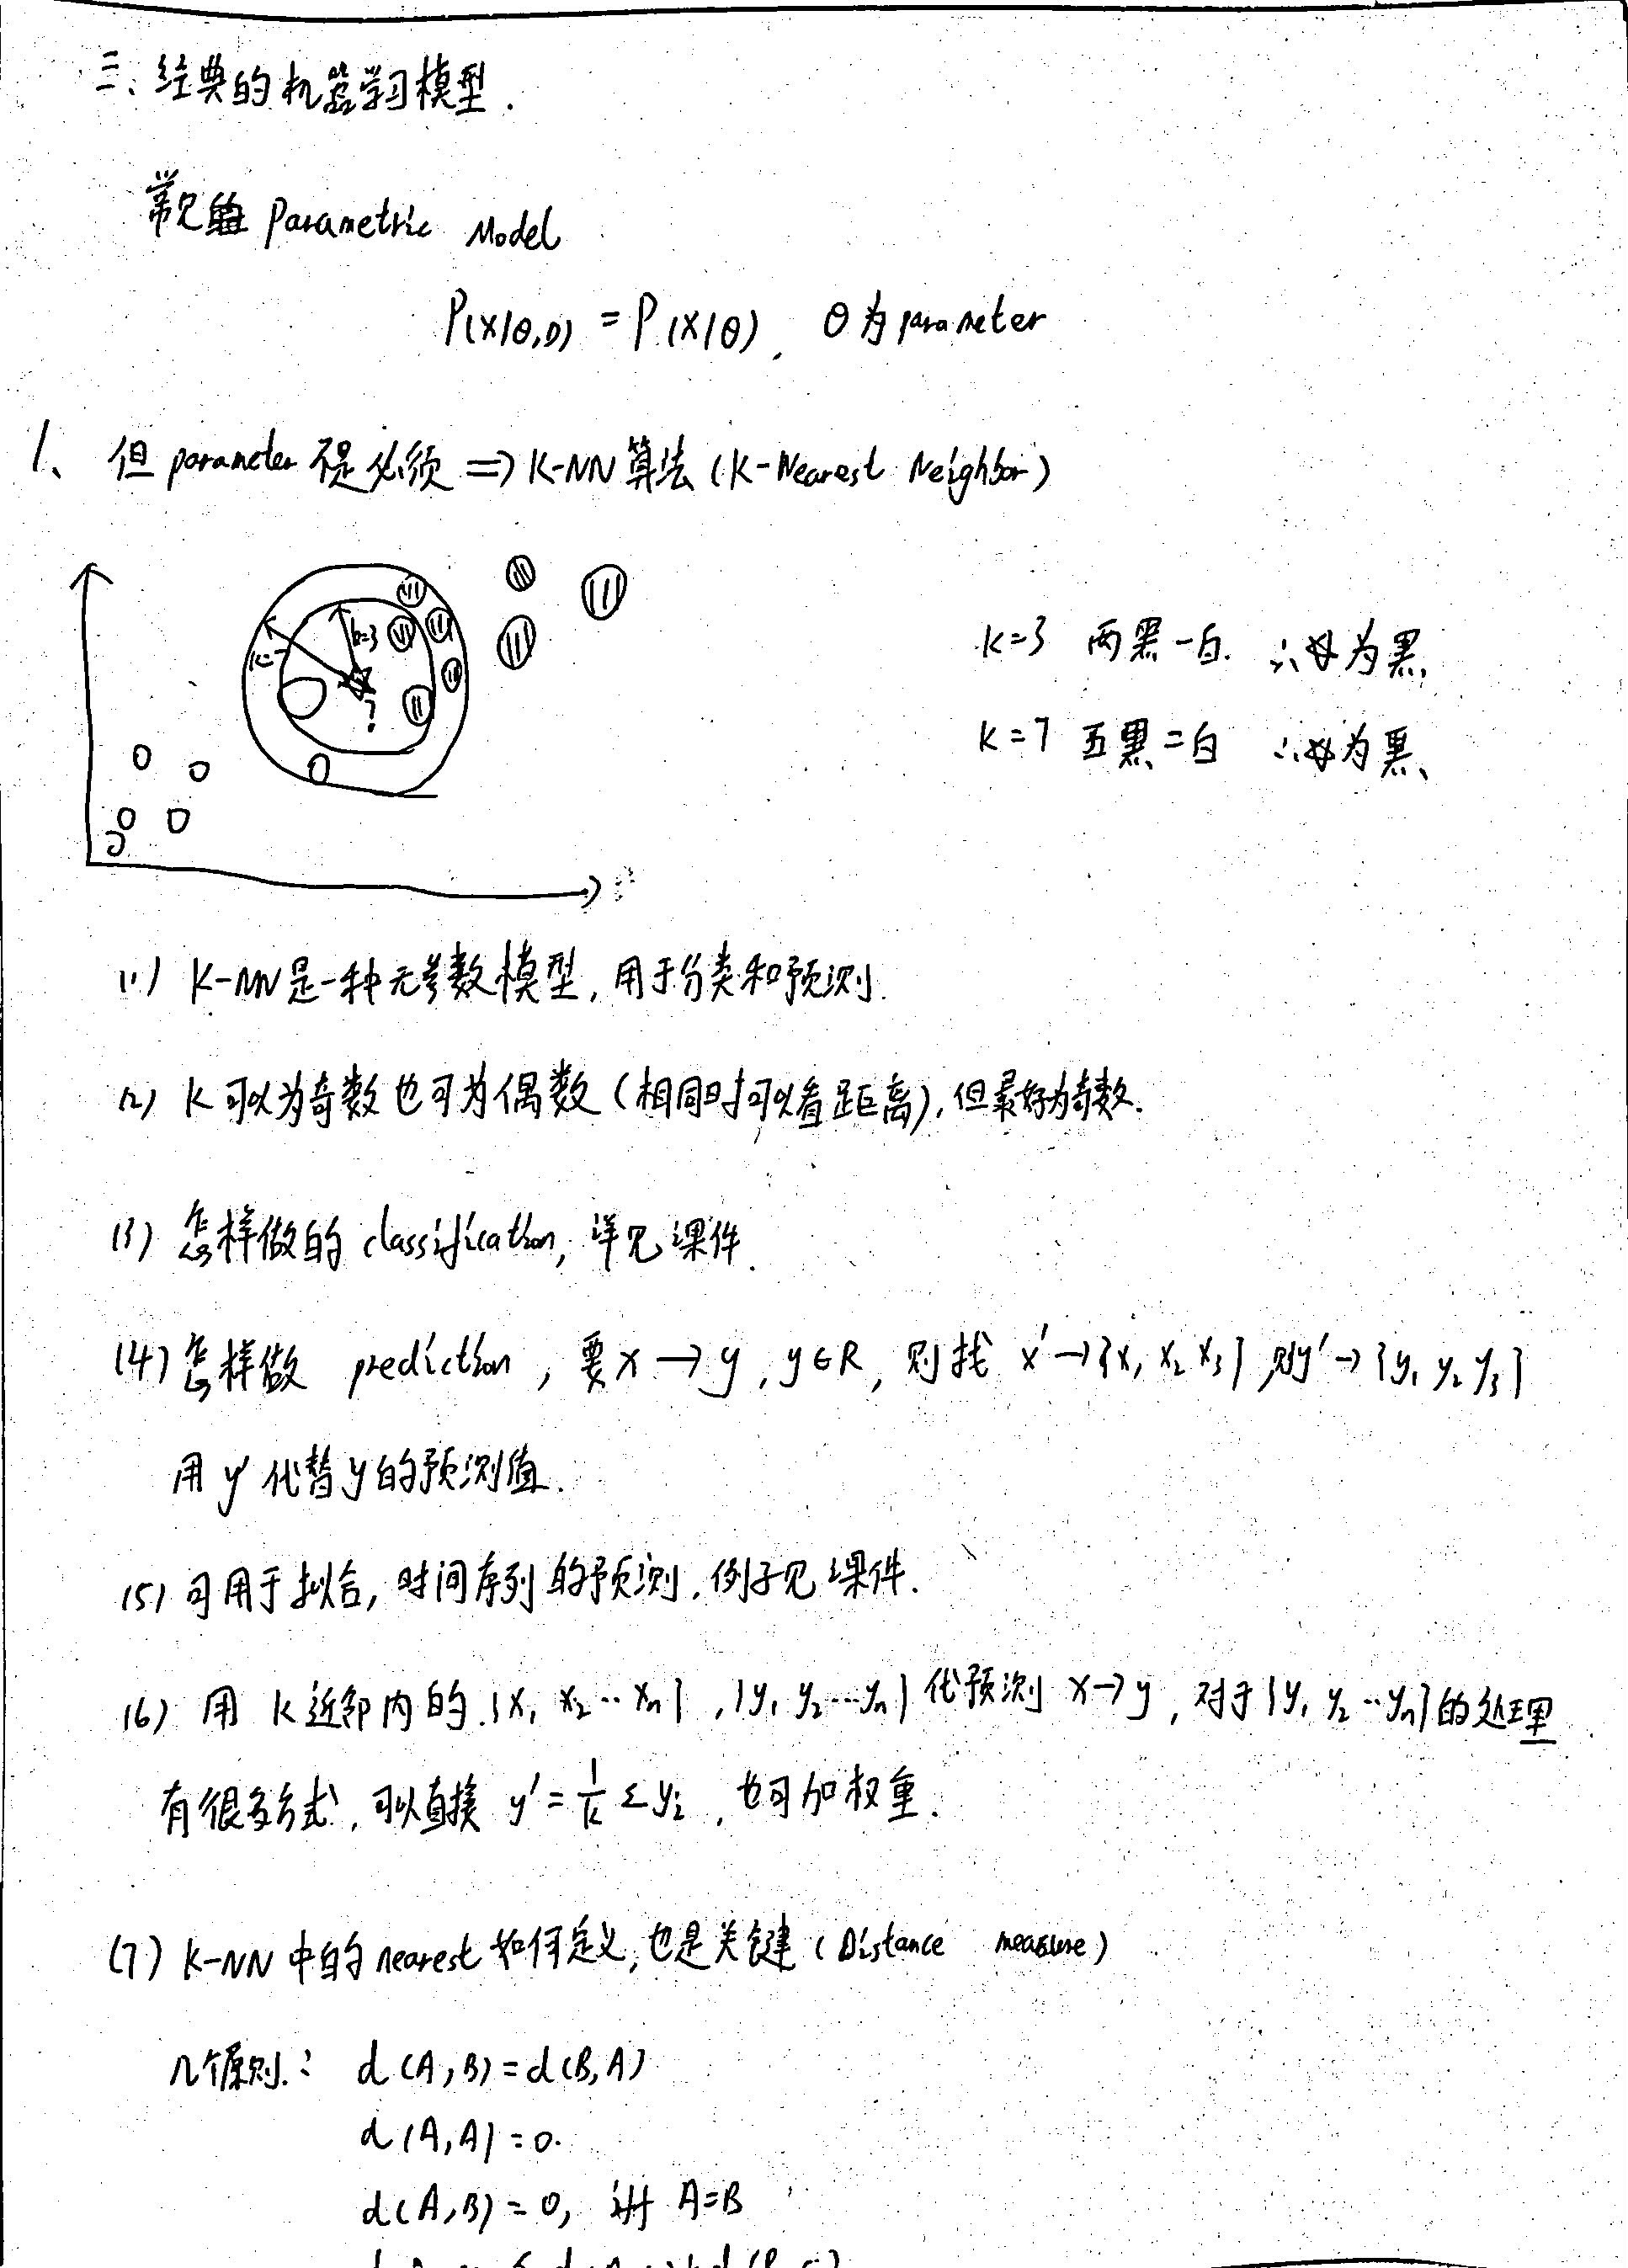 三、经典的机器学习模型.
常见的 Parametric Model
P(x|θ,D) = P(x|θ). θ为parameter
1、但 parameter 不是必须 => K-NN 算法 (K-Nearest Neighbor)
k=3
k=7
?
k=3 两黑一白. ∴ 为黑.
k=7 五黑二白 ∴ 为黑、
(1) K-NN是一种无参数模型, 用于分类和预测.
(2) K可以为奇数也可为偶数 (相同时可以看距离), 但最好为奇数.
(3) 怎样做的 classification, 详见课件.
(4) 怎样做 prediction, 要 x → y, y∈R, 则找 x' → {x₁ x₂ x₃} 则y' → {y₁ y₂ y₃}
用 y' 代替y的预测值.
(5) 可用于拟合, 时间序列的预测. 例子见课件.
(6) 用 k近邻内的 {x₁ x₂ ·· xₙ}, {y₁ y₂ ··· yₙ} 代预测 x→y, 对于{y₁ y₂ ·· yₙ}的处理
有很多方式, 可以直接 y' = 1/k Σ yᵢ, 也可加权重.
(7) K-NN 中的 nearest 如何定义, 也是关键 (Distance measure)
几个原则: d(A,B) = d(B,A)
d(A,A) = 0.
d(A,B) = 0, iff A=B